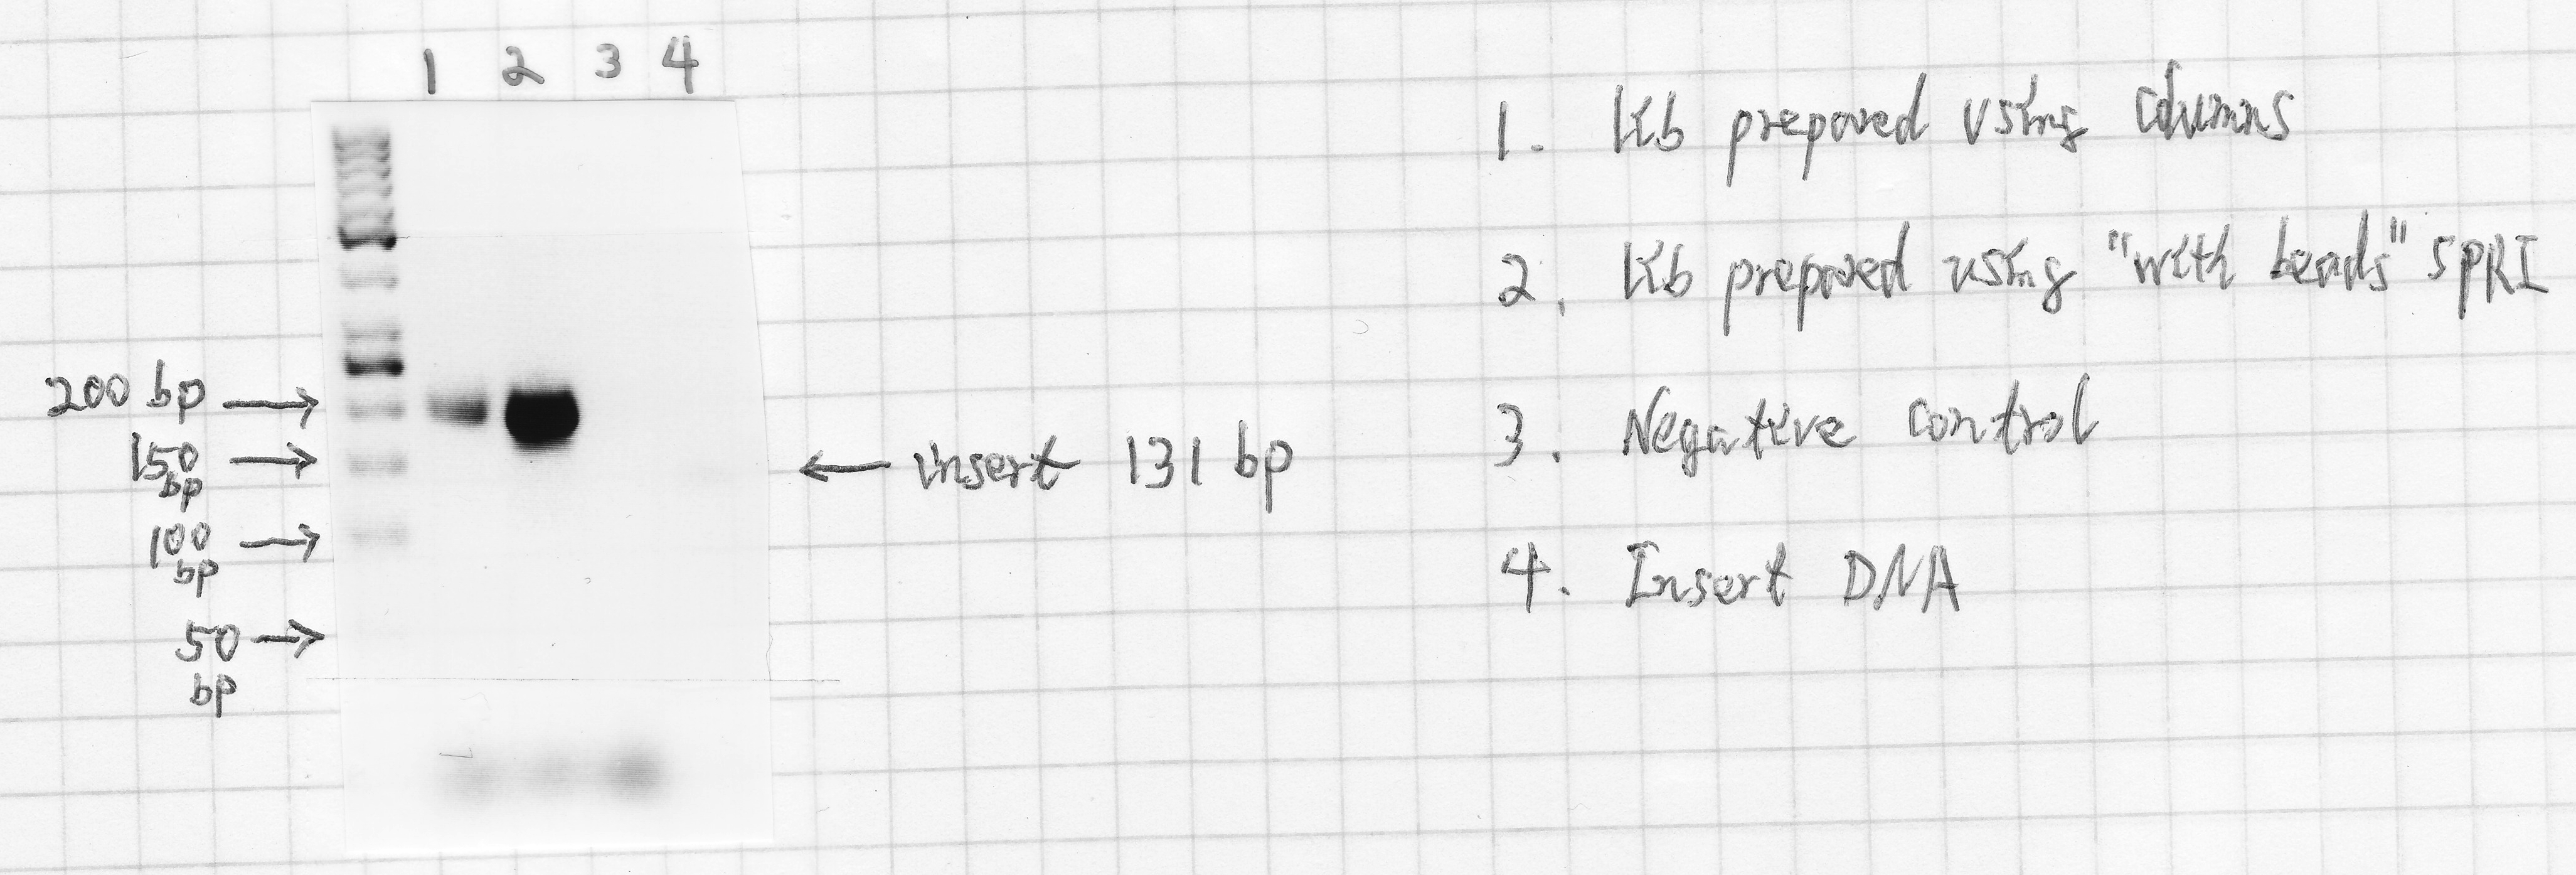 1 2 3 4
200 bp →
150 bp →
100 bp →
50 bp →
← insert 131 bp
1. Lib prepared using columns
2. Lib prepared using "with beads" SPRI
3. Negative control
4. Insert DNA